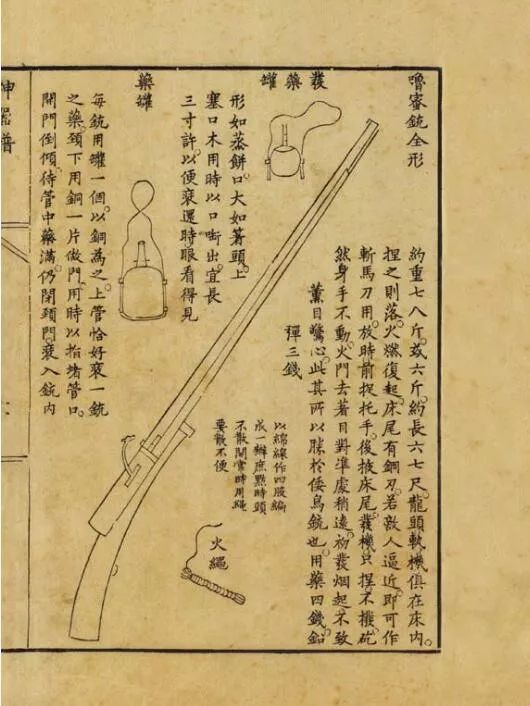 嚕密銃全形
約重七八斤或六斤約長六七尺龍頭軌機俱在床內
捏之則落火燃復起床尾有銅刃若敵人逼近即可作
斬馬刀用放時前捉托手後掖床尾發機只捏不撥砣
然身手不動火門去著目對準處稍遠初發烟起不致
薰目驚心此其所以勝於倭鳥銃也用藥四錢鉛
彈三錢
發藥罐
形如蒸餅口大如箸頭上
塞口木用時以口嚙出宜長
三寸許以便裝還時眼看得見
火繩
以綿線作四股編
成一辮庶點時頭
不散開常時用繩
要散不便
藥罐
每銃用罐一個以銅為之上管恰好裝一銃
之藥頸下用銅一片做門用時以指堵管口
開門倒傾待管中藥滿仍閉頸門裝入銃內
神器譜